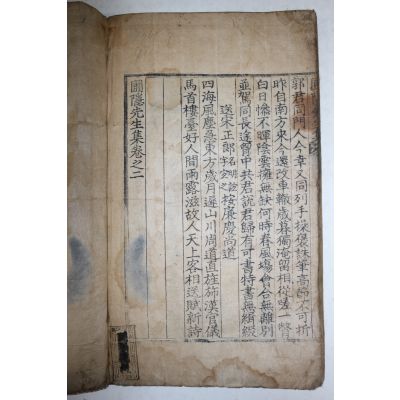 郭君同門人今幸又同列手操褒貶筆高節不可折
昨自南方來今還改車轍歲暮獨淹留相從嗟一瞥
白日慘不暉陰雲擁無缺何時春風塲會合無離別
並駕同長途胷中共君說君歸有可書特書無緝綴
送宋正郎名明誼字之按廉慶尚道
四海風塵急東方歲月遲山川周道直旌旆漢官儀
馬首樓臺好人間雨露滋故人天上客相送賦新詩
圃隱先生集卷之二